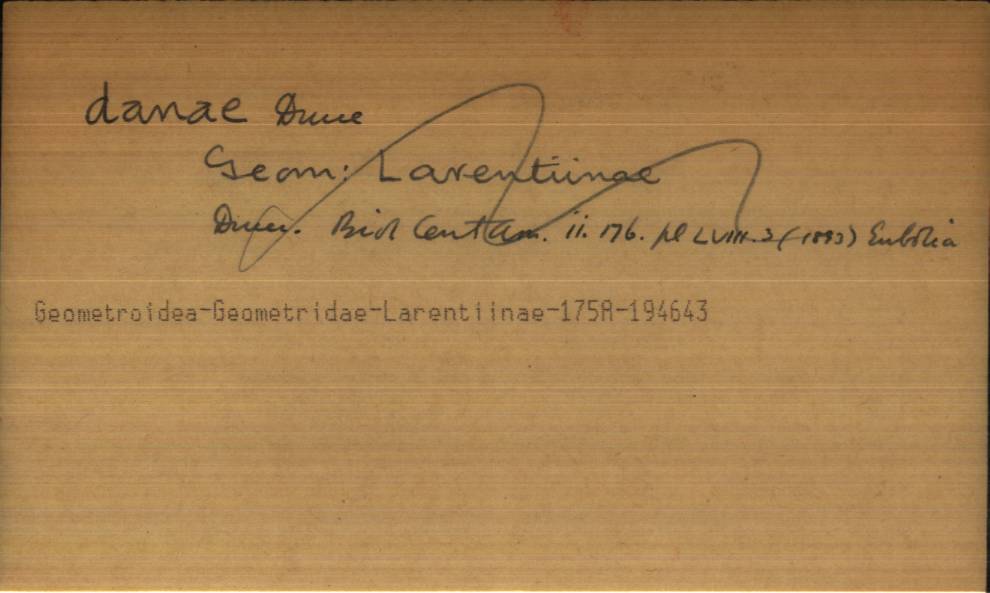 danae Druce
Geom: Larentiinae
Druce. Biol Cent Am. ii. 176. pl LVIII. 3 (1893) Eubolia
Geometroidea-Geometridae-Larentiinae-175A-194643